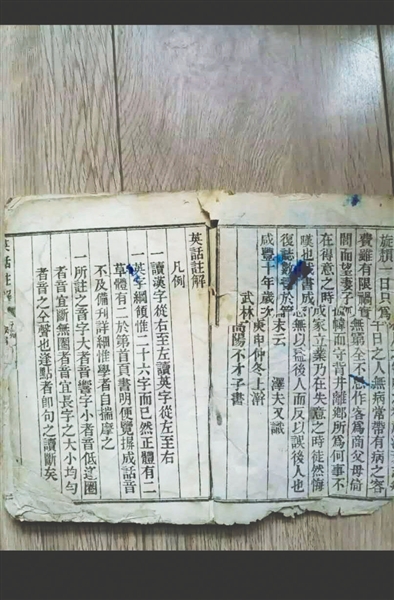 旋頭一日只為千日之人無病常帶有病之容
費雖有限禍實無窮第全不作客為商父母倚
閭而望妻子幃而守背井離鄉所為何事不
在得意之時成家立業乃在失意之時徒然悔
嘆也哉書成無以益後人而反以誤後人也
復誌數於末云 澤夫又識
咸豐十年歲次庚申仲冬上澣
武林高陽不才子書
英話註解
凡例
一讀漢字從右至左讀英字從左至右
一英字綱領惟二十六字而已然正體有二
草體有二於第首頁書明便覽揖成話音
不及備刊詳細惟學者自揣摩之
一所註之音字大者音響字小者音低逕圈
者音宜斷無圈者音宜長字之大小均勻
者音之全聲也逢點者卽句之讀斷矣
英話註解